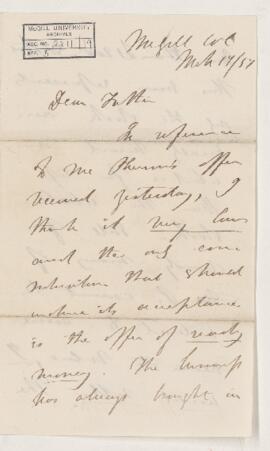 McGILL UNIVERSITY
ARCHIVES
ACC. NO. 2211
REF.
McGill Col
Mch 17/57
Dear Father
In reference
to Mr offer
received yesterday, I
think it very low
and the only con-
sideration that should
induce its acceptance
is the offer of ready
money. The business
has always brought in